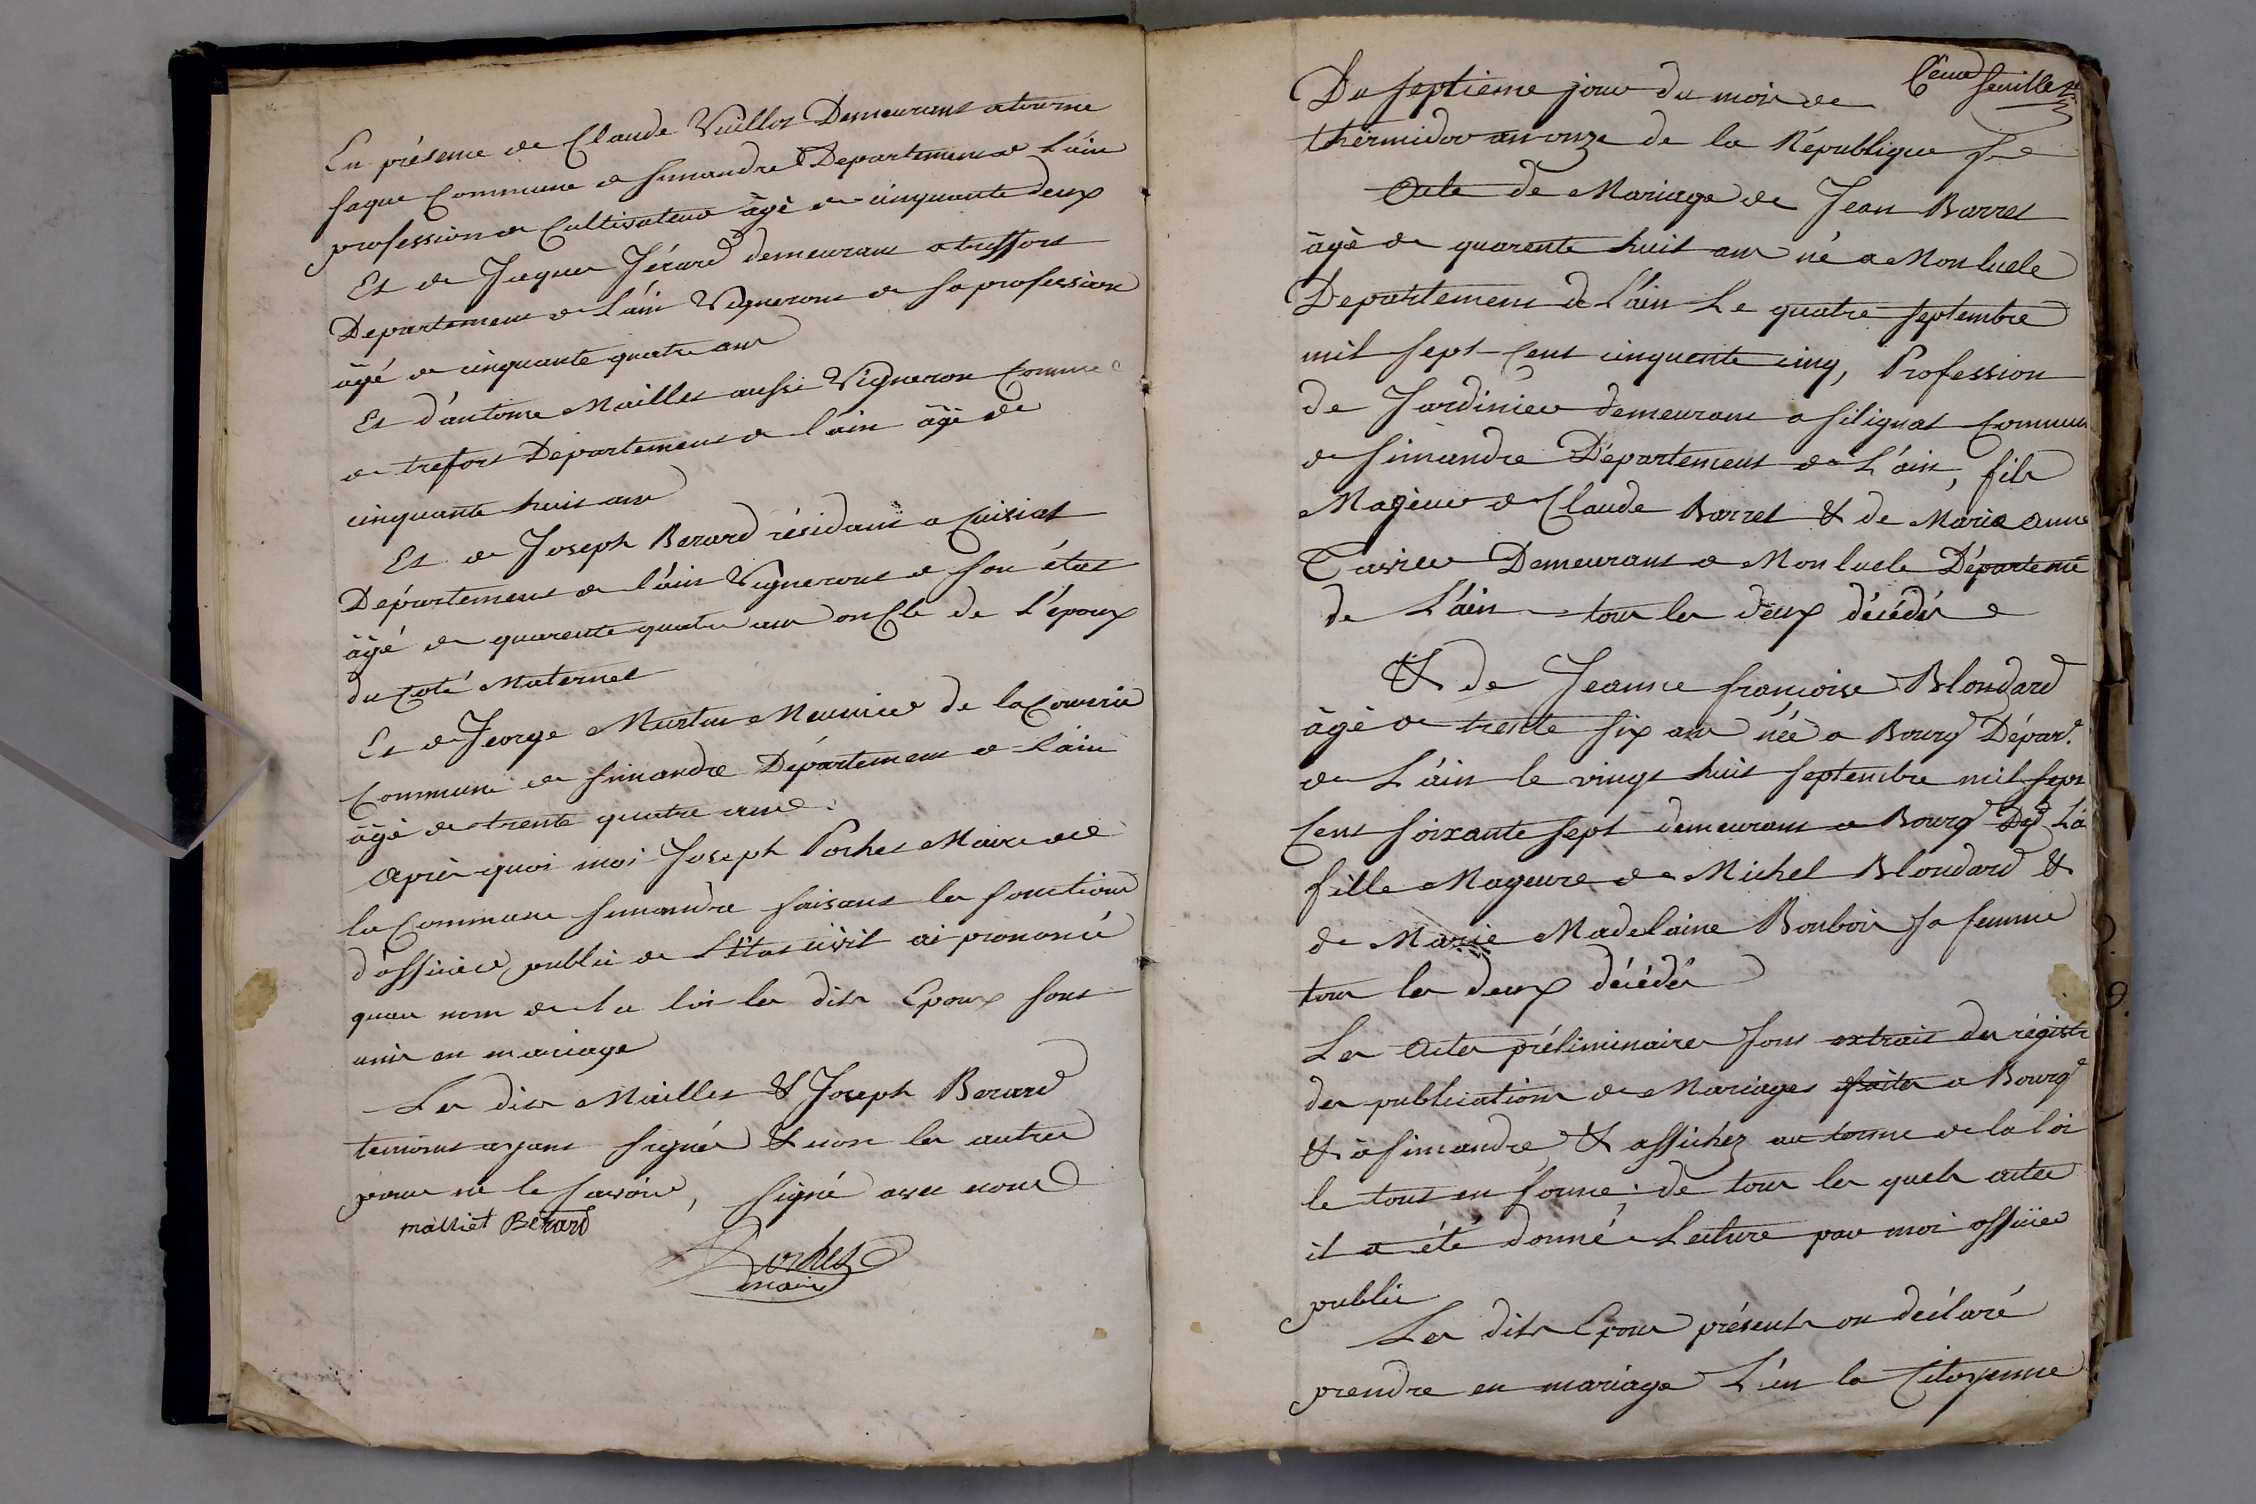 En présence de Claude Vuillot Demeurant atourne
saque Commune de Simandre Departement de L'ain
profession de Cultivateur âgé de cinquante deux
Et de Jaque Jérard demeurant a treffort
Departement de L'ain Vigneront de sa profession
âgé de cinquante quatre ans
Et d'antoine Maillet aussi Vigneron Commune
de trefort Departement de l'ain âgé de
cinquante huit ans
Et de Joseph Berard résidant a Cuisiat
Département de l'ain Vigneront de son état
âgé de quarente quatre ans oncle de L'époux
du Coté Maternel
Et de George Martin Meunier de la
Commune de Simandre Département de L'ain
âgé de trente quatre ans
Après quoi moi Joseph Pochet Maire de
la Commune Simandre faisant les fonctions
d'officier public de L'état civil ai prononcé
quau nom de la loi les dits Epoux sont
unis en mariage
Les dits Maillet & Joseph Berard
temoins ayant signés & non les autres
pour ne le savoir, signé avec nous
malliet Berard
Pochet
maire
feuillet
Du septieme jour du mois de
thermidor an onze de la République f.se
Acte de Mariage de Jean Barret
âgé de quarente huit ans né a Monluele
Departement de L'ain Le quatre septembre
mil sept Cent cinquente cinq, Profession
de Jardinier demeurant a silignat Commune
de Simandre Département de L'ain, fils
Majeur de Claude Barret & de Marie Anne
Demeurant a Monluele Départeme
de L'ain tous les deux décédés
& de Jeanne françoise Blondard
âgé de trente six ans née a Bourg Départ.
de L'ain le vingt huit septembre mil sept
Cent soixante sept demeurant a Bourg Dep.t La
fille Mageure de Michel Blondard &
de Marie Madelaine Bonbois sa femme
tous les deux décédés
Les Actes préliminaires sont extrait des régistr
des publications de Mariages faites a Bourg
& à simandre & affichez au terme de la loi
le tout en forme: de tous les quels actes
il a été donné Lecture par moi officier
public
Les dits Epoux présents on déclaré
prendre en mariage L'un la Citoyenne